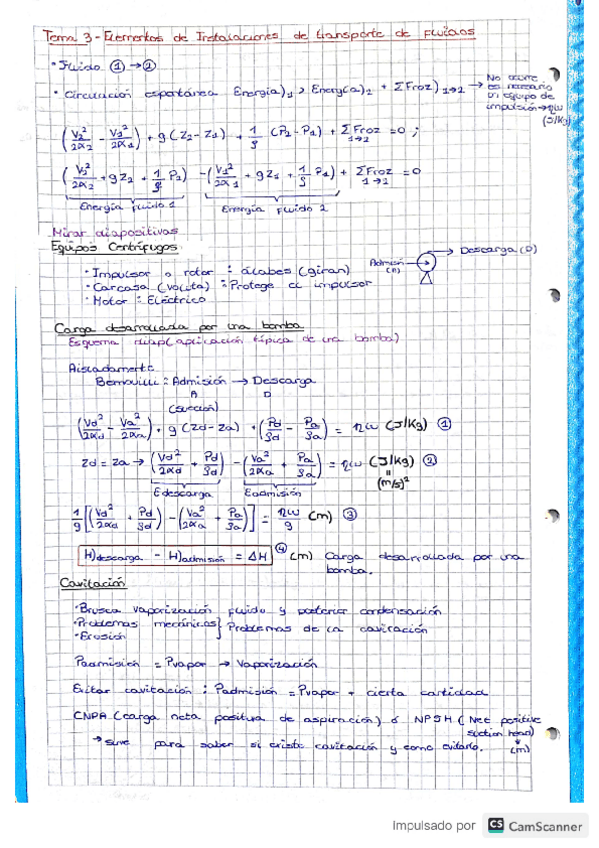 Tema 3 - Elementos de Instalaciones de transporte de Fluidos
· Fluido ① → ②
· Circulación espontánea Energía)₁ > Energía)₂ + ΣFroz)₁→₂ → No ocurre, es necesario un equipo de impulsión → ηω (J/Kg)
(V₂²/2α₂ - V₁²/2α₁) + g(Z₂-Z₁) + 1/ρ (P₂-P₁) + ΣFroz 1→2 = 0 ;
(V₂²/2α₂ + gZ₂ + 1/ρ P₂) - (V₁²/2α₁ + gZ₁ + 1/ρ P₁) + ΣFroz 1→2 = 0
Energía Fluido 1 Energía Fluido 2
Mirar diapositivas
Equipos Centrífugos
Descarga (D)
Admisión
· Impulsor o rotor : álabes (giran)
· Carcasa (voluta) : Protege el impulsor
· Motor : Eléctrico
Carga desarrollada por una bomba
Esquema diap (aplicación típica de una bomba)
Aisladamente
Bernouilli : Admisión → Descarga
A D
(succión)
(Vd²/2αd - Va²/2αa) + g(Zd-Za) + (Pd/ρd - Pa/ρa) = ηω (J/Kg) ①
Zd = Za → (Vd²/2αd + Pd/ρd) - (Va²/2αa + Pa/ρa) = ηω (J/Kg) ②
Edescarga Eadmisión (m/s)²
1/g [(Vd²/2αd + Pd/ρd) - (Va²/2αa + Pa/ρa)] = ηω/g (m) ③
H)descarga - H)admisión = ΔH ④ (m) Carga desarrollada por una
bomba.
Cavitación
· Brusca vaporización fluido y posterior condensación
· Problemas mecánicos } Problemas de la cavitación
· Erosión
Padmisión = Pvapor → Vaporización
Evitar cavitación : Padmisión = Pvapor + cierta cantidad
CNPA (carga neta positiva de aspiración) ó NPSH (Net positive
suction head)
→ sirve para saber si existe cavitación y como evitarlo. (m)
Impulsado por CS CamScanner